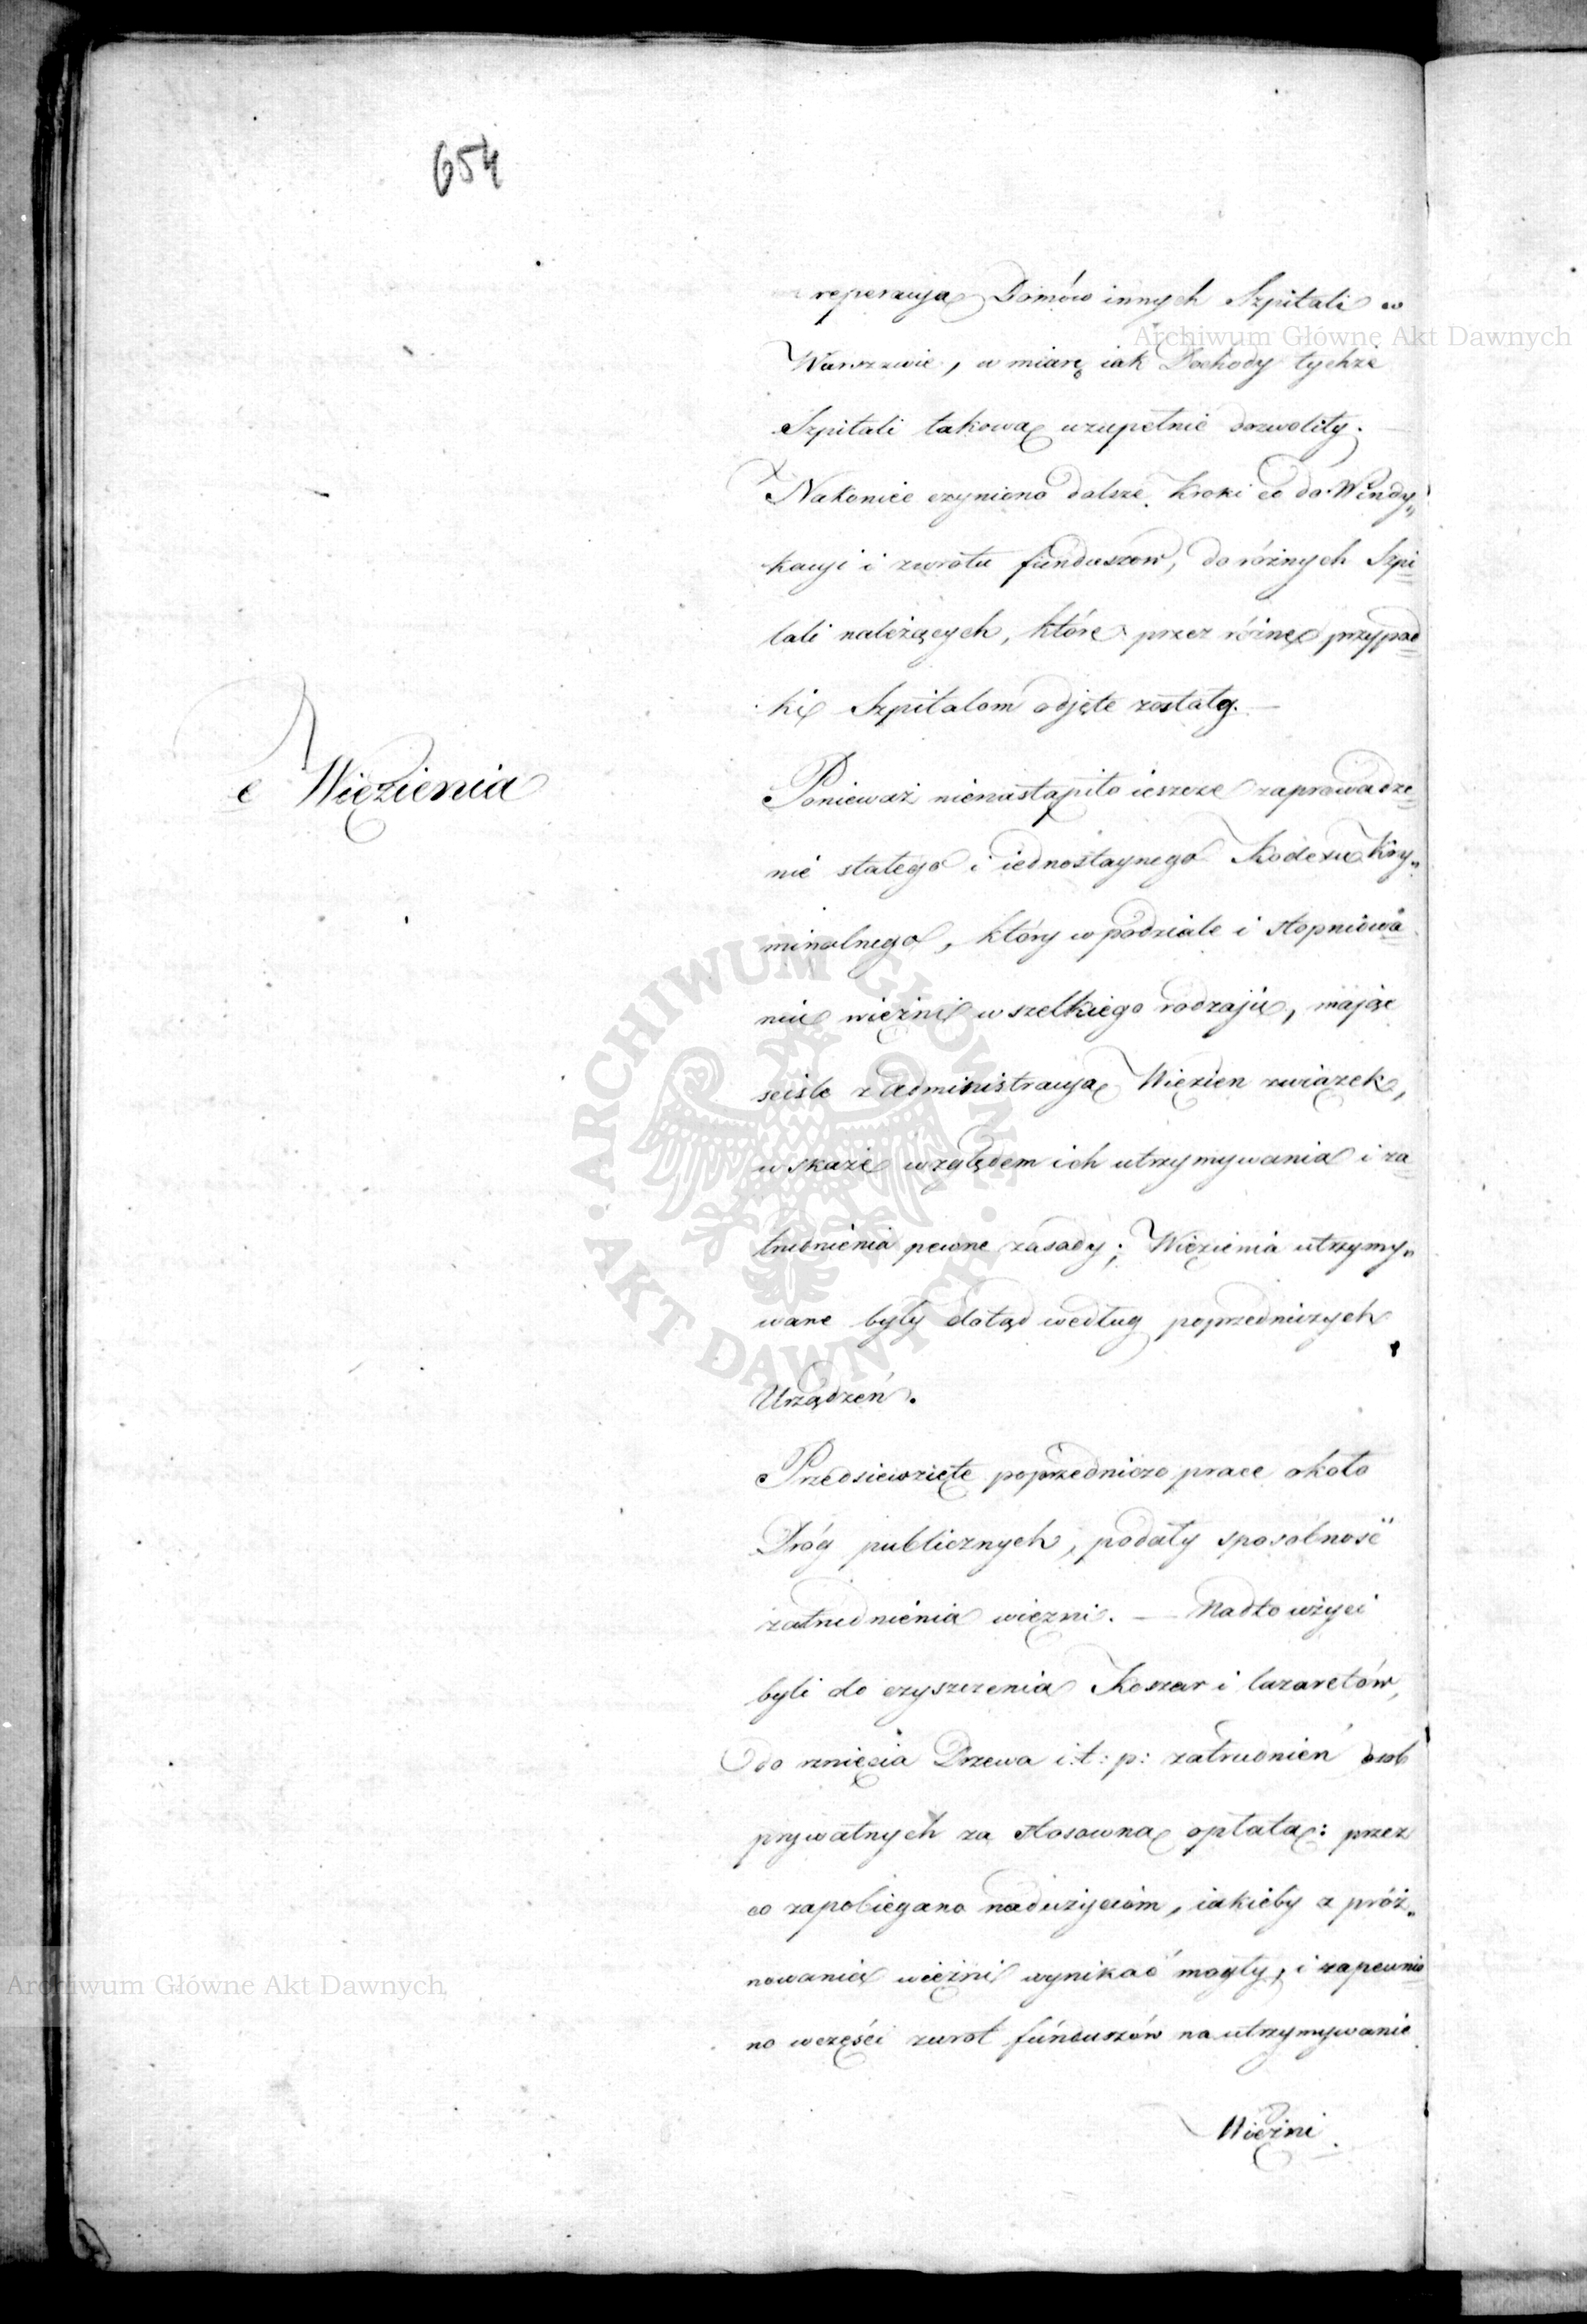 654
reperacyą Domów innych Szpitali w
Warszawie, w miarę iak Dochody tychże
Szpitali takową uzupełnić dozwoliły.
Nakoniec czyniono dalsze kroki co do Windy„
kacyi i zwrotu funduszow, do różnych Szpi=
tali należących, które przez różne przypad=
ki Szpitalom odjęte zostały.
e Więzienia
Ponieważ nienastąpiło ieszcze zaprowadze=
nie stałego i iednostaynego Kodexu Kry„
minalnego, który w podziale i stopniowa=
niu więźni wszelkiego rodzaju, mając
ścisły z administracyą Więzien związek,
wskaże względem ich utrzymywania i za=
trudnienia pewne zasady; Więzienia utrzymy„
wane były dotąd według poprzedniczych
Urządzeń.
Przedsięwzięte poprzedniczo prace około
Dróg publicznych, podały sposobność
zatrudnienia więzni. — Nadto użyci
byli do czyszczenia Koszar i lazaretów,
do rznięcia Drzewa i:t:p: zatrudnień osob
prywatnych za stosowną opłatą: przez
co zapobiegano nadużyciom, iakieby z próż„
nowania więźni wynikać mogły, i zapewnio=
no w części zwrot funduszów na utrzymywanie
Więźni
Archiwum Główne Akt Dawnych
Archiwum Główne Akt Dawnych
ARCHIWUM GŁÓWNE · AKT DAWNYCH ·